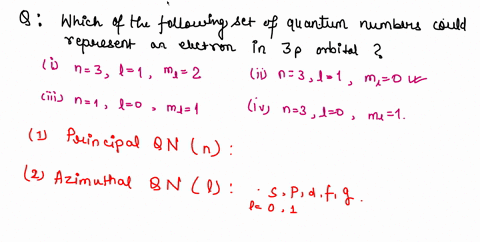 Q: Which of the following set of quantum numbers could
represent an electron in 3p orbital ?
(i) n=3, l=1, ml=2 (ii) n=3, l=1, ml=0 ✓
(iii) n=1, l=0, ml=1 (iv) n=3, l=0, ml=1.
(1) Principal QN (n):
(2) Azimuthal QN (l): s, p, d, f, g.
l= 0, 1